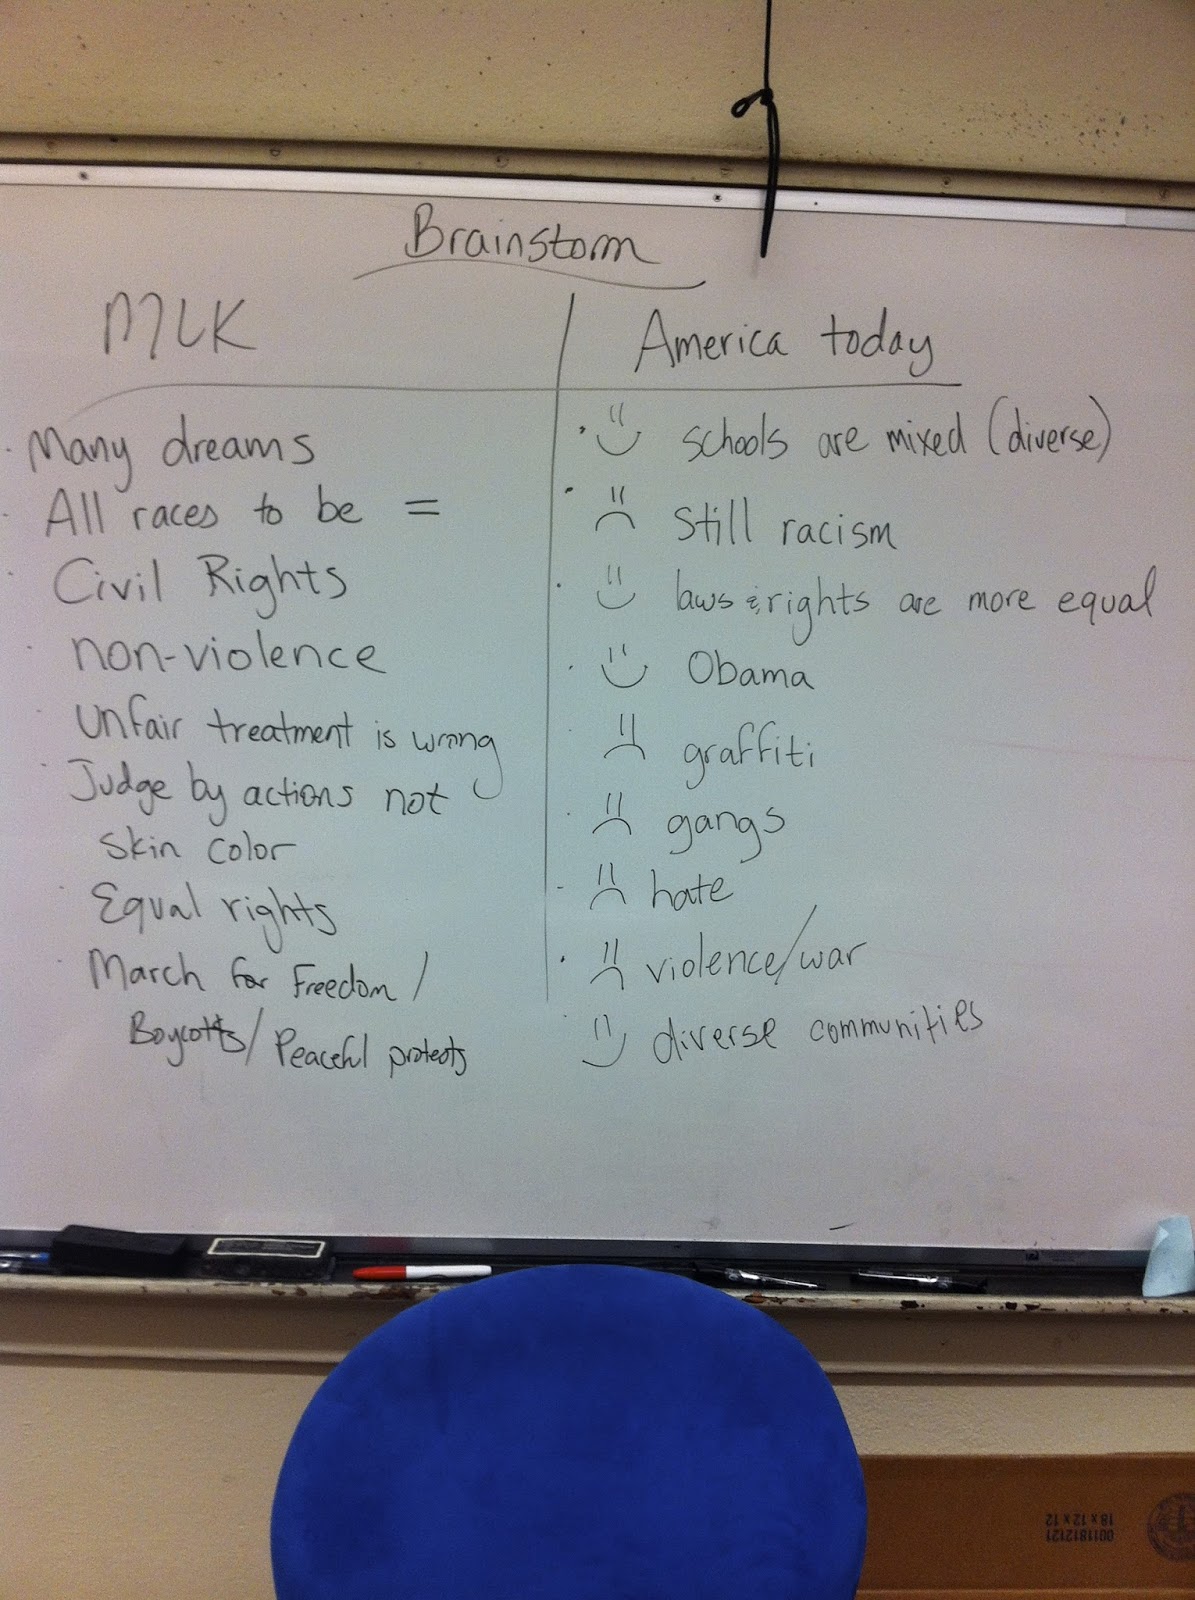 Brainstorm
MLK
Many dreams
All races to be =
Civil Rights
non-violence
Unfair treatment is wrong
Judge by actions not
skin color
Equal rights
March for Freedom/
Boycotts/Peaceful protests
America today
schools are mixed (diverse)
Still racism
laws & rights are more equal
Obama
graffiti
gangs
hate
violence/war
diverse communities
0011812121
18 x 12 x 12